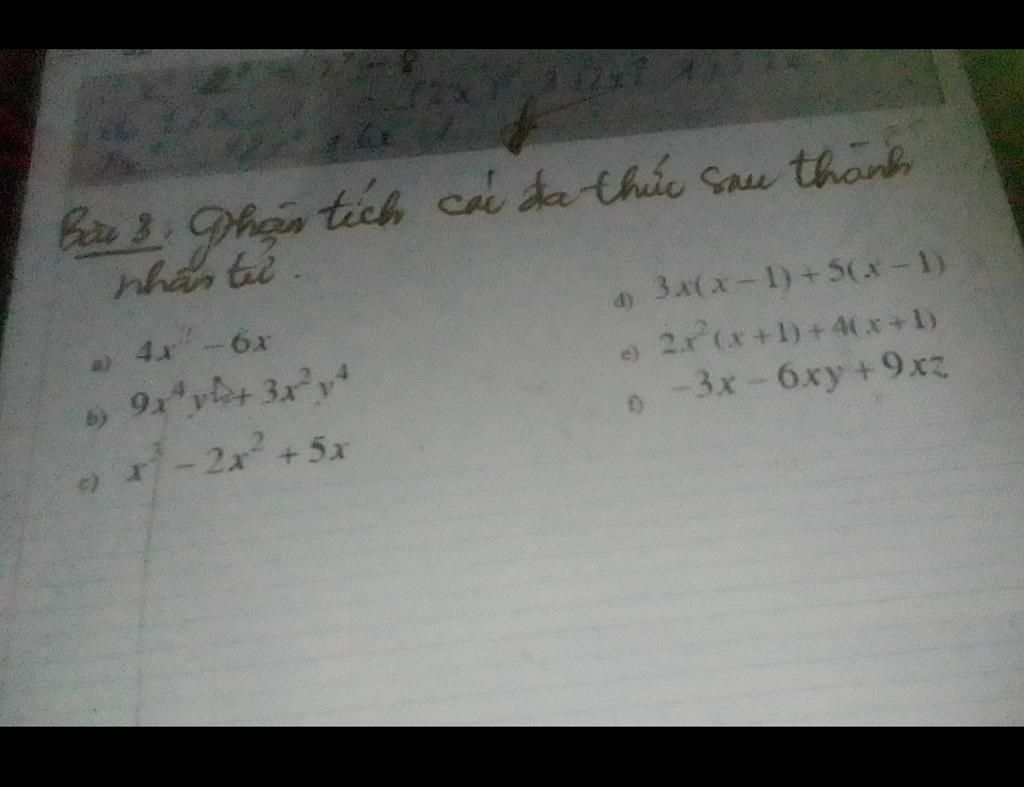 Bài 3. Phân tích các đa thức sau thành
nhân tử.
a) 4x² - 6x
b) 9x⁴y + 3x²y⁴
c) x³ - 2x² + 5x
d) 3x(x-1) + 5(x-1)
e) 2x²(x+1) + 4(x+1)
f) -3x - 6xy + 9xz